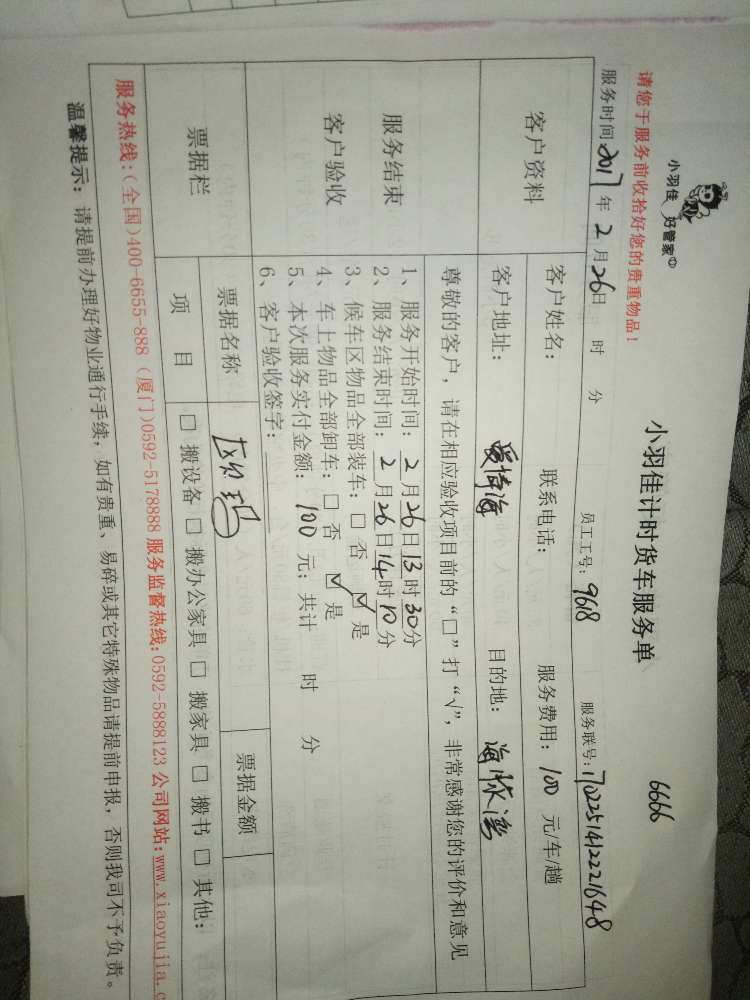 小羽佳 好管家
请您于服务前收拾好您的贵重物品！
小羽佳计时货车服务单
6666
服务时间 2017 年 2 月 26 日 时 分
员工工号：968
服务联号：1702251412221648
客户资料
客户姓名： 联系电话： 服务费用：100 元/车/趟
客户地址： 爱情海 目的地：海怡湾
服务结束
客户验收
尊敬的客户，请在相应验收项目前的“□”打“√”，非常感谢您的评价和意见
1、服务开始时间：2月26日13时30分
2、服务结束时间：2月26日14时10分
3、候车区物品全部装车：□ 否 ☑ 是
4、车上物品全部卸车：□ 否 ☑ 是
5、本次服务实付金额：100 元；共计 时 分
6、客户验收签字：
票据栏
票据名称 票据金额
项 目 □ 搬设备 □ 搬办公家具 □ 搬家具 □ 搬书 □ 其他：
服务热线：（全国）400-6655-888（厦门）0592-5178888 服务监督热线：0592-5888123 公司网站：www.xiaoyujia.c
温馨提示：请提前办理好物业通行手续，如有贵重、易碎或其它特殊物品请提前申报，否则我司不予负责。